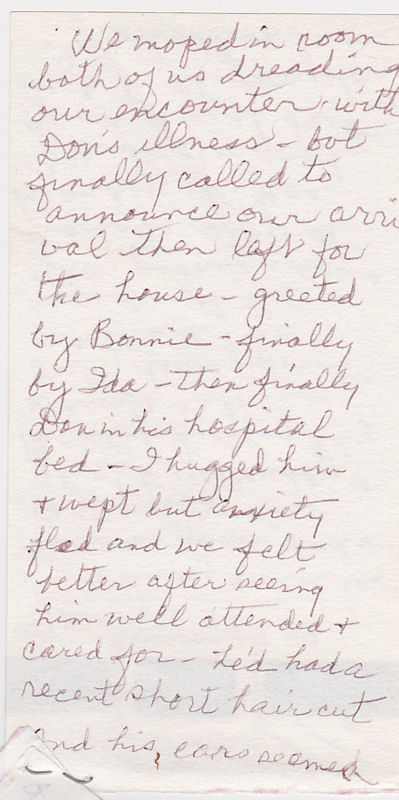 We moped in room
both of us dreading
our encounter with
Don's illness - but
finally called to
announce our arri
val then left for
the house - greeted
by Bonnie - finally
by Ida - then finally
Don in his hospital
bed - I hugged him
+ wept but anxiety
fled and we felt
better after seeing
him well attended +
cared for - he'd had a
recent short hair cut
And his ears seemed